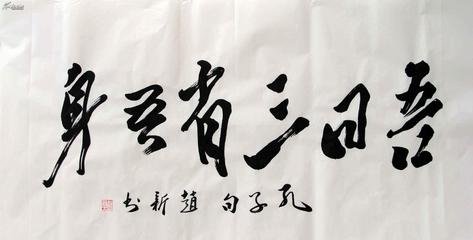 吾日三省吾身
孔子句 趙新书